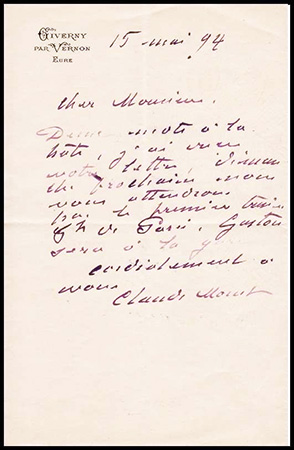 GIVERNY
PAR VERNON
EURE
15 mai 94
cher Monsieur,
Deux mots à la
hâte, j'ai reçu
votre lettre, diman
che prochain nous
vous attendrons
par le premier train
de Paris, Gaston
sera à la
cordialement à
vous
Claude Monet